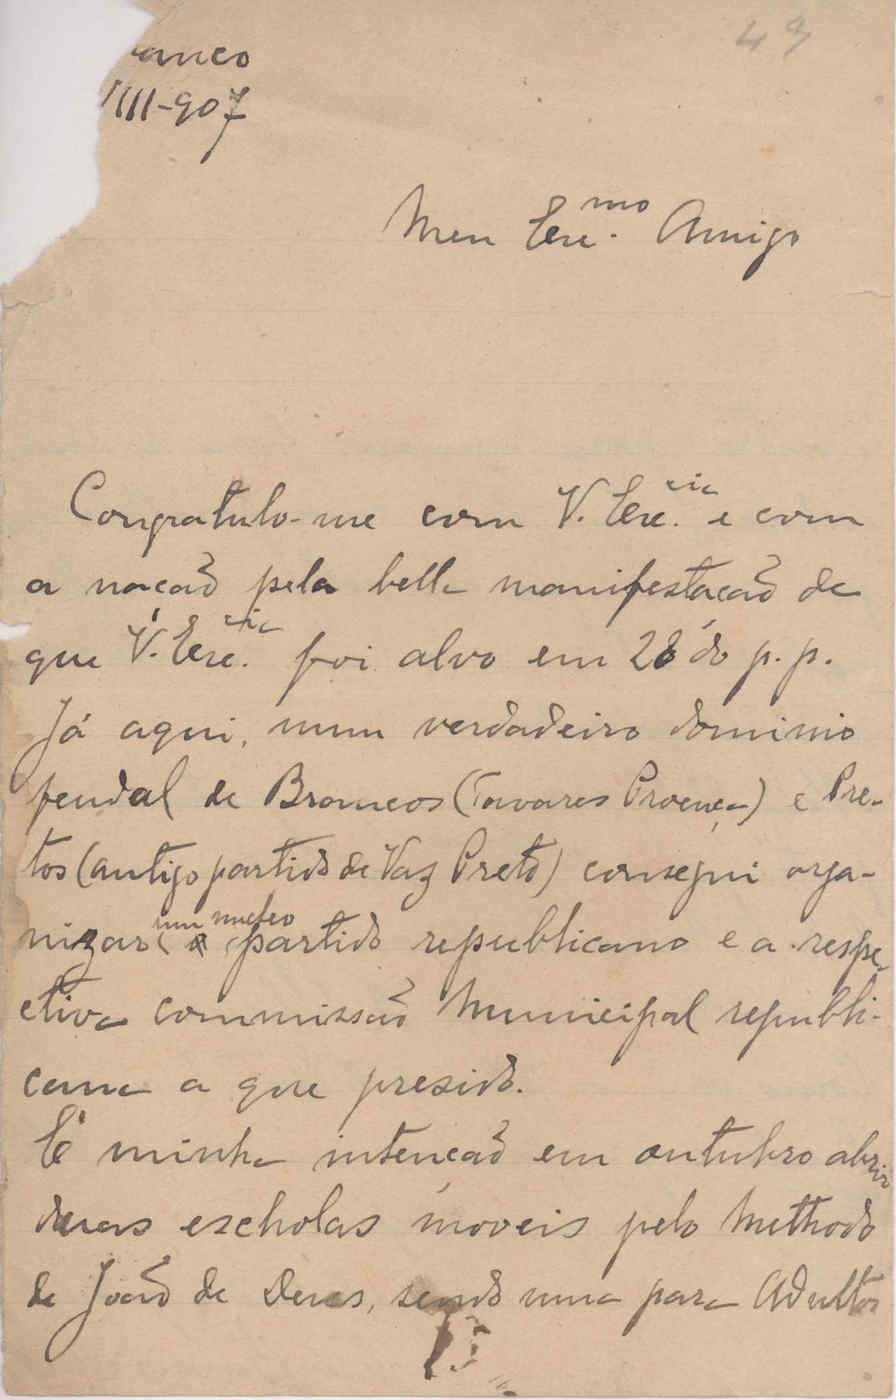 49
anco
VIII-907
Meu Exc.mo Amigo
Congratulo-me com V. Exc.cia e com
a nação pela bella manifestação de
que V. Exc.cia foi alvo em 28 do p. p.
Já aqui, num verdadeiro dominio
feudal de Brancos (Tavares Proença) e Pre-
tos (antigo partido de Vaz Preto) consegui orga-
nizar um nucleo partido republicano e a respe-
ctiva commissão Municipal republi-
cana a que presido.
É minha intenção em outubro abrir
duas escholas moveis pelo Methodo
de João de Deus, sendo uma para Adultos